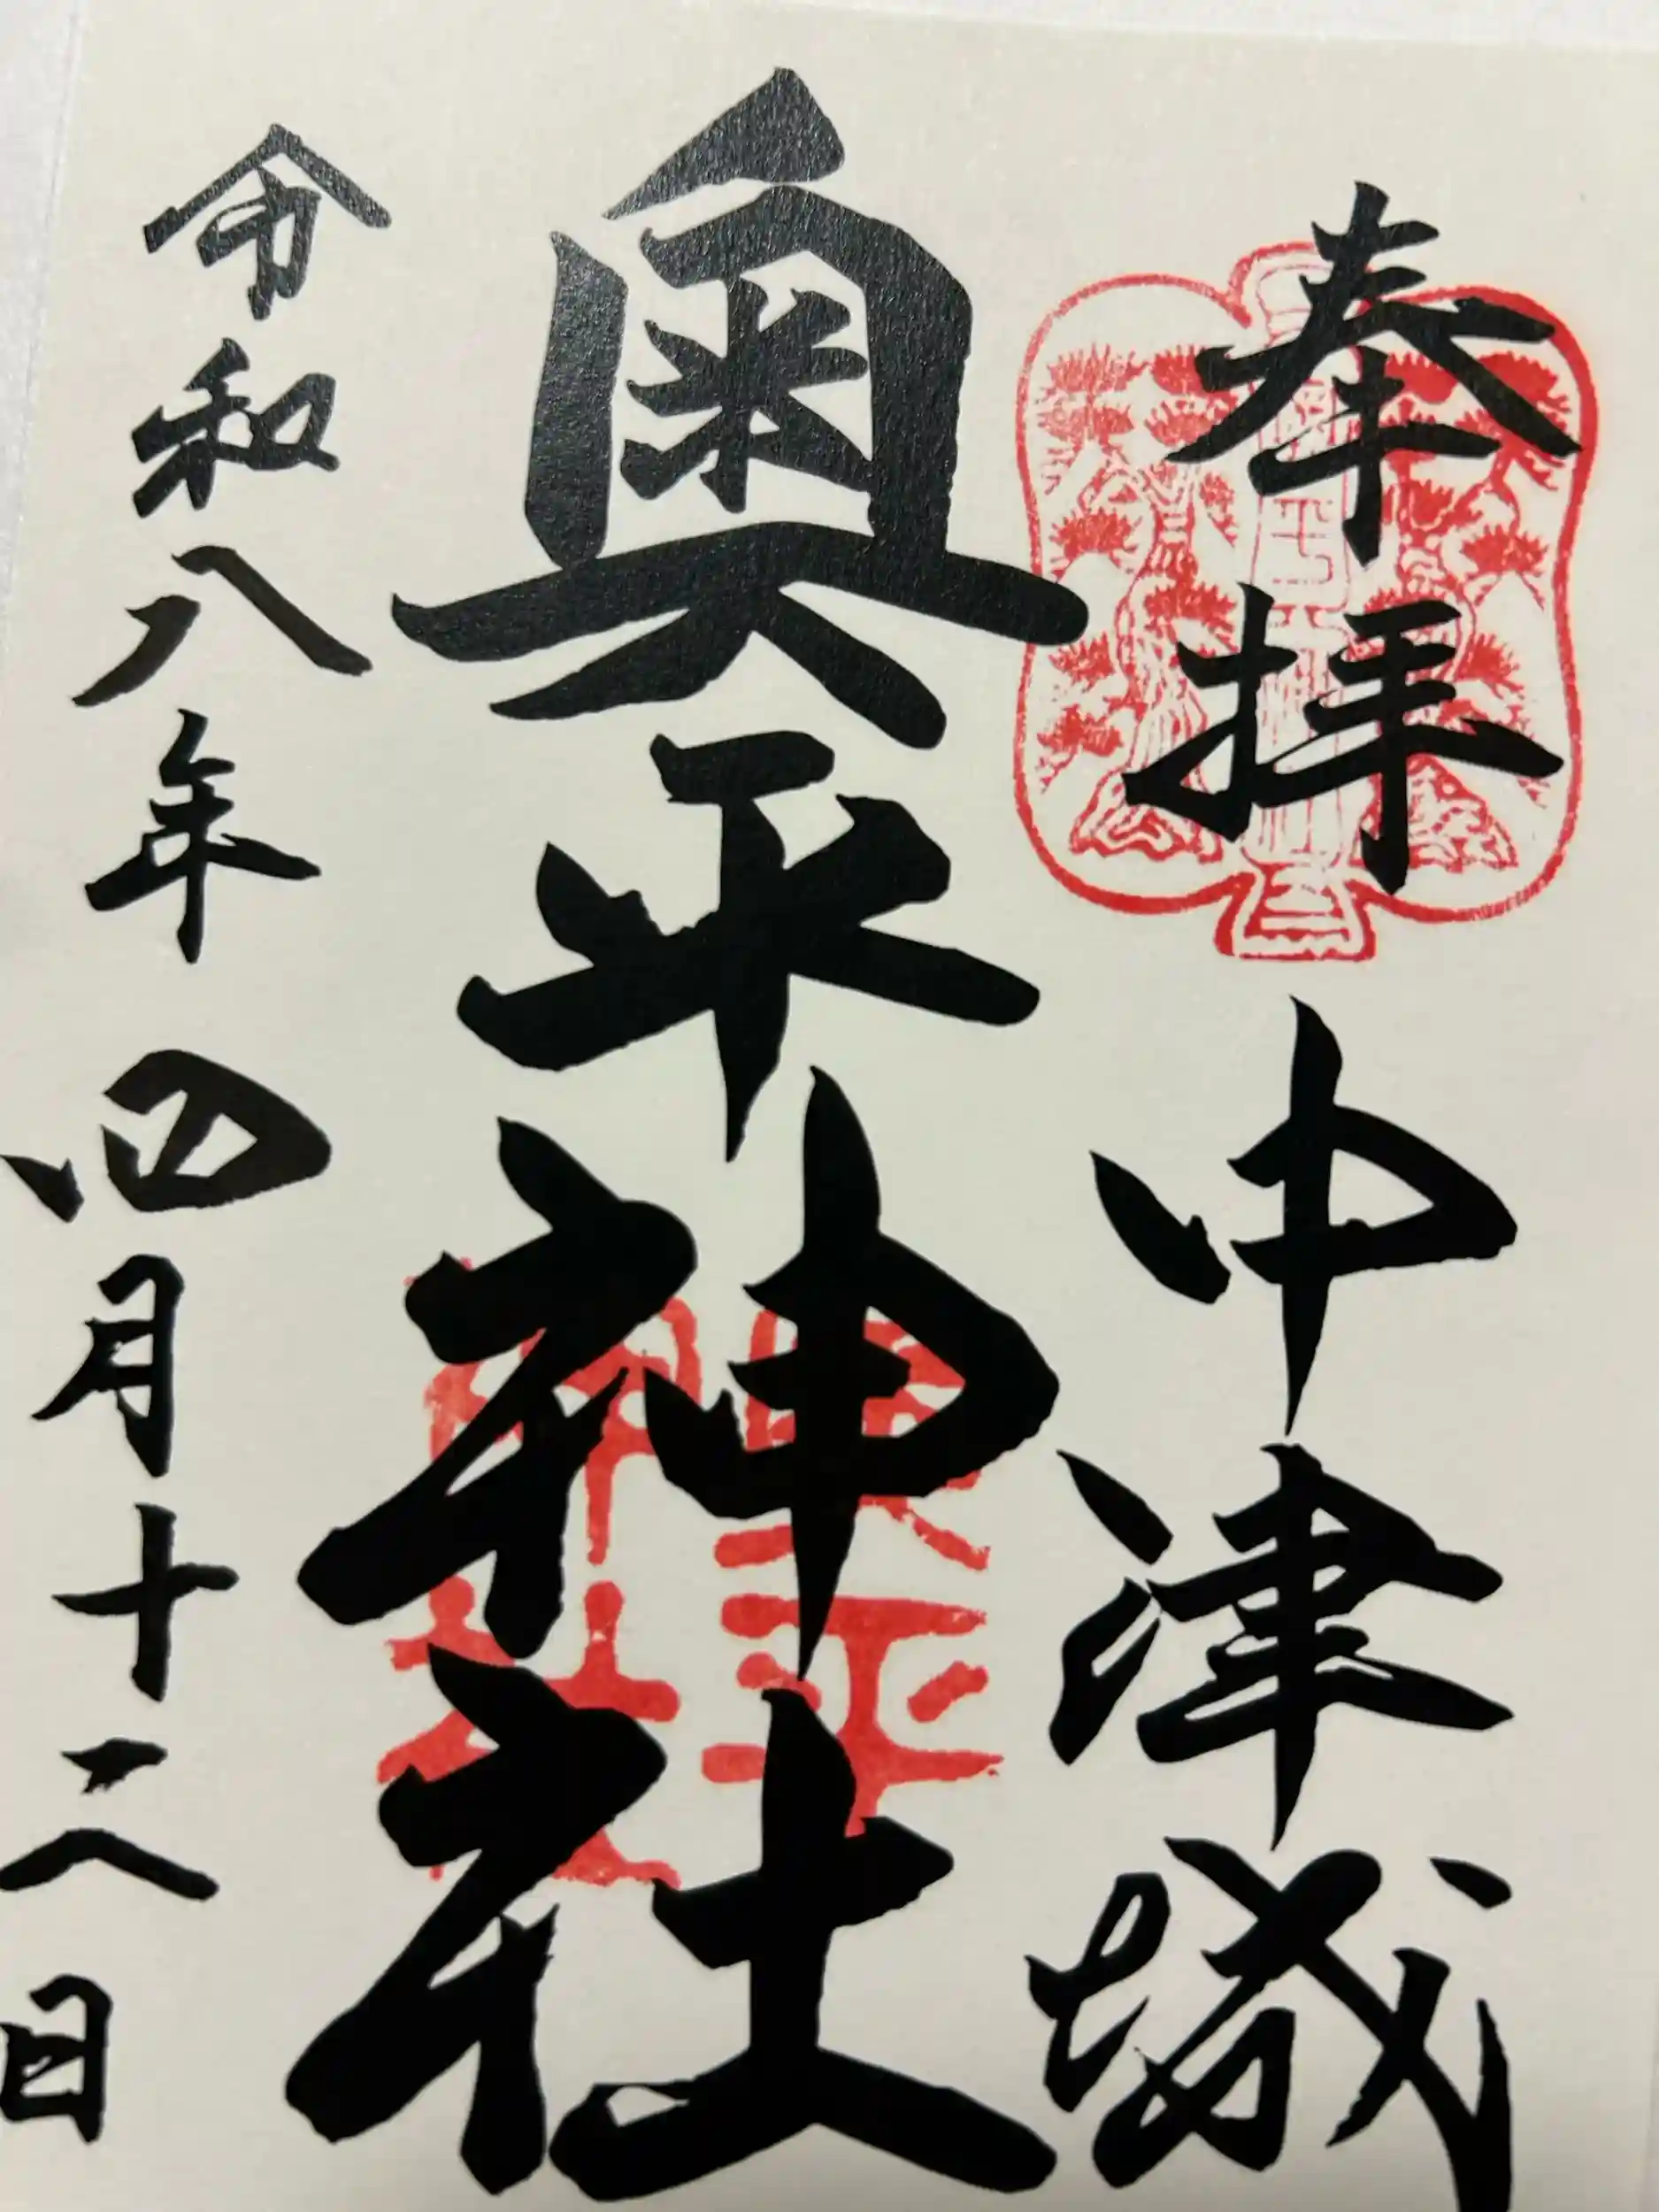 奉拝 中津城
奥平神社
令和八年 四月十二日
奥平
神社